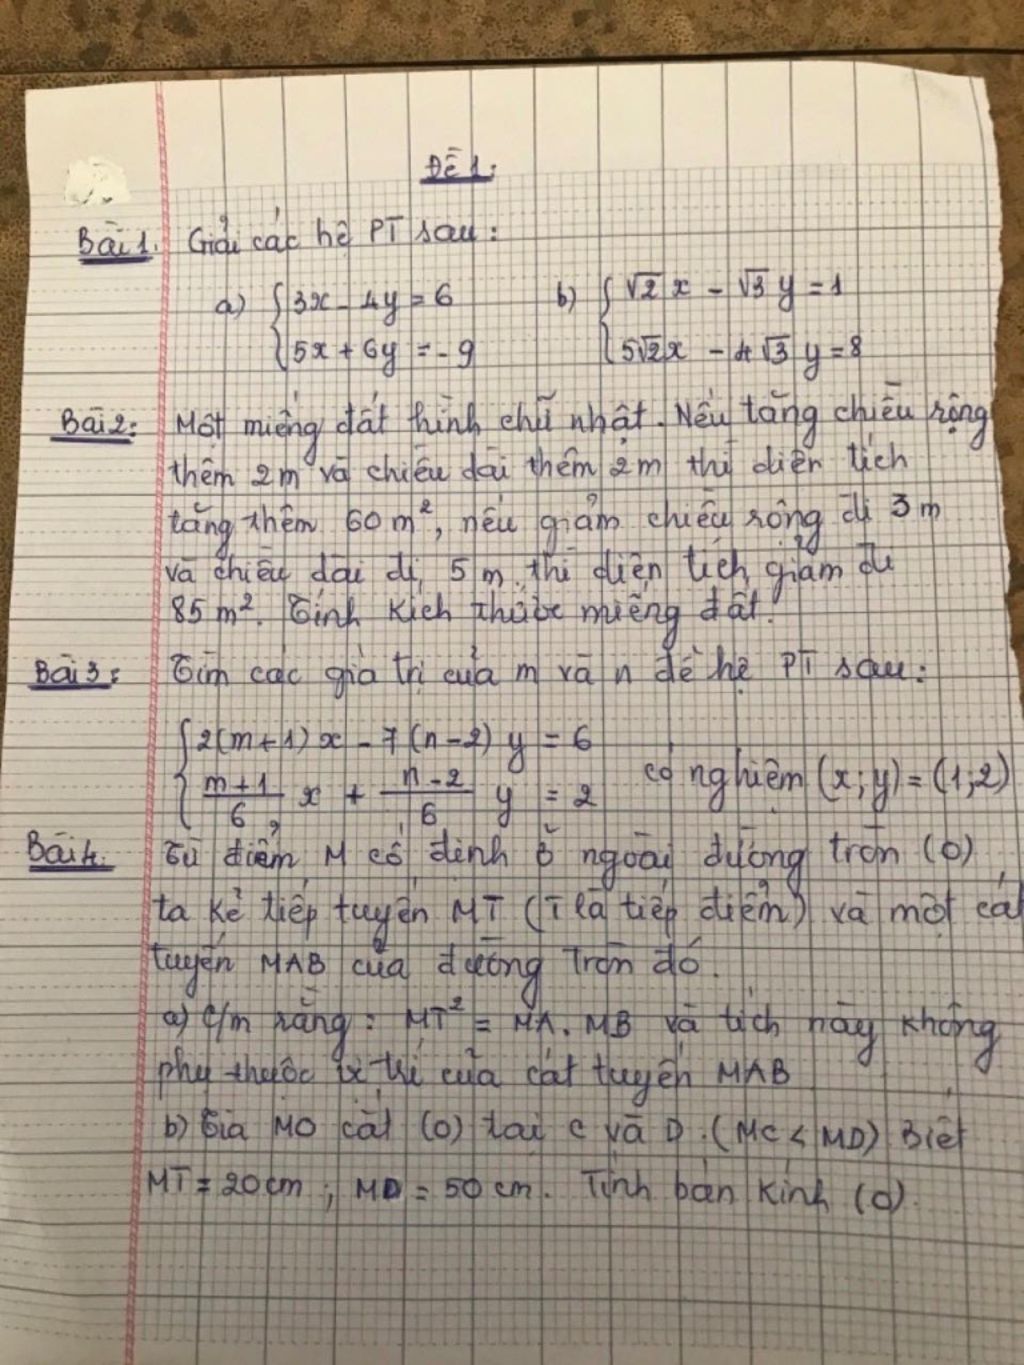 Đề 1:
Bài 1. Giải các hệ PT sau:
a) { 3x - 4y = 6 b) { √2 x - √3 y = 1
5x + 6y = -9 5√2x - 4√3 y = 8
Bài 2: Một miếng đất hình chữ nhật. Nếu tăng chiều rộng
thêm 2m và chiều dài thêm 2m thì diện tích
tăng thêm 60m², nếu giảm chiều rộng đi 3m
và chiều dài đi 5m thì diện tích giảm đi
85m². Tính kích thước miếng đất.
Bài 3: Tìm các giá trị của m và n để hệ PT sau:
{ 2(m+1)x - 7(n-2) y = 6
(m+1)/6 x + (n-2)/6 y = 2 có nghiệm (x;y) = (1;2)
Bài 4. Từ điểm M cố định ở ngoài đường tròn (O)
ta kẻ tiếp tuyến MT (T là tiếp điểm) và một cát
tuyến MAB của đường tròn đó.
a) C/m rằng: MT² = MA. MB và tích này không
phụ thuộc vị trí của cát tuyến MAB
b) Gia MO cắt (O) tại C và D. (MC < MD) Biết
MT = 20cm; MD = 50cm. Tính bán kính (O).